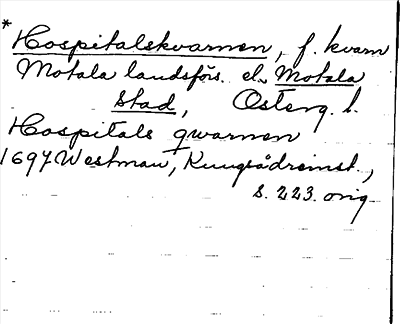 *
Hospitalskvarnen, f. kvarn
Motala landsförs. el. Motala
stad, Österg. l.
Hospitals qwarnen
1697 Westman, Kungsådreinst.,
s. 223. orig